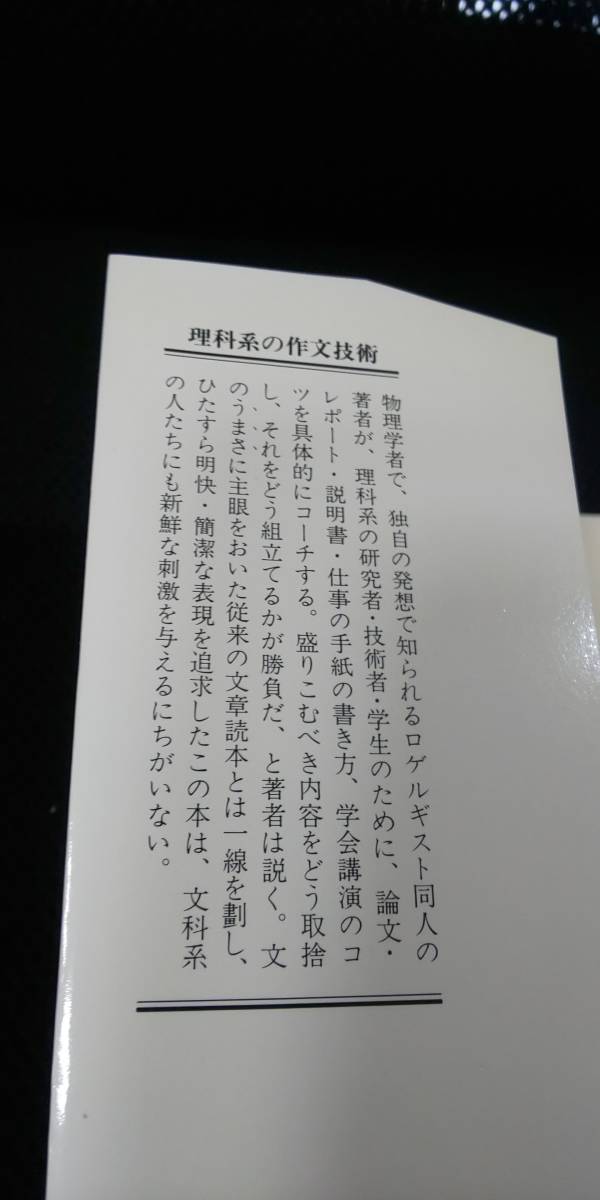 理科系の作文技術
物理学者で、独自の発想で知られるロゲルギスト同人の
著者が、理科系の研究者・技術者・学生のために、論文・
レポート・説明書・仕事の手紙の書き方、学会講演のコ
ツを具体的にコーチする。盛りこむべき内容をどう取捨
し、それをどう組立てるかが勝負だ、と著者は説く。文
のうまさに主眼をおいた従来の文章読本とは一線を劃し、
ひたすら明快・簡潔な表現を追求したこの本は、文科系
の人たちにも新鮮な刺激を与えるにちがいない。